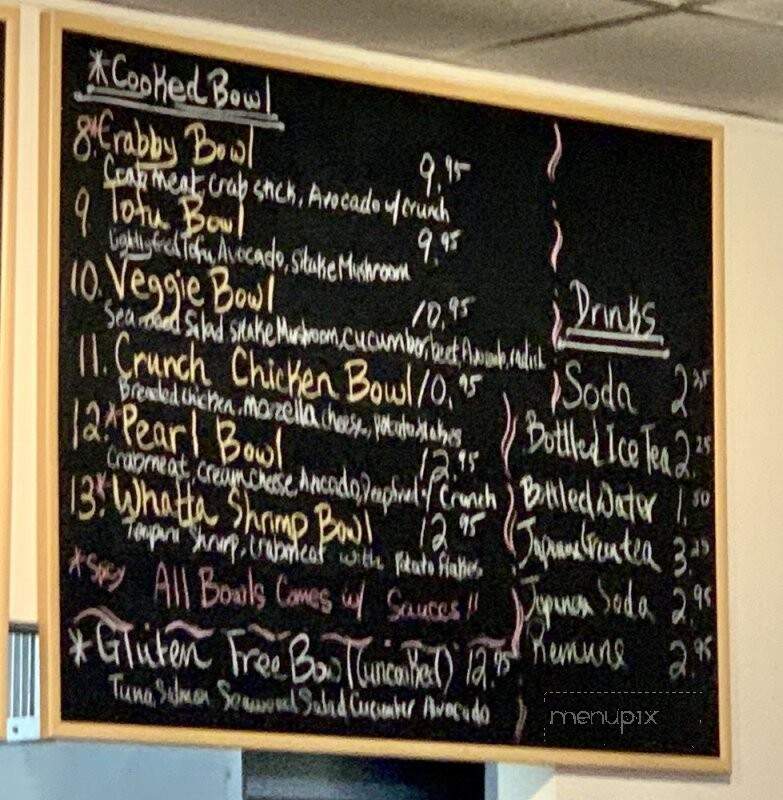 *Cooked Bowl
8.*Crabby Bowl 9.95
Crabmeat, crab stick, Avocado w/ crunch
9 Tofu Bowl 9.95
Lightly fried Tofu, Avocado, Sitake Mushroom
10. Veggie Bowl 10.95
Seaweed Salad sitake Mushroom, cucumber, beet, Avocado, radish
11. Crunch Chicken Bowl 10.95
Breaded chicken, mozella cheese, potato flakes
12.*Pearl Bowl 12.95
Crabmeat, cream cheese, Avocado, Deepfried w/ Crunch
13.*Whatta Shrimp Bowl 12.95
Tempura Shrimp, crabmeat with Potato Flakes
*Spicy All Bowls Comes w/ Sauces!!
*Gluten Free Bowl (uncooked) 12.95
Tuna, Salmon, Seaweed Salad Cucumber Avocado
Drinks
Soda
Bottled Ice Tea 2.25
Bottled Water 1.50
Japanese Green tea 3.25
Japanese Soda 2.95
Remune 2.95
menupix